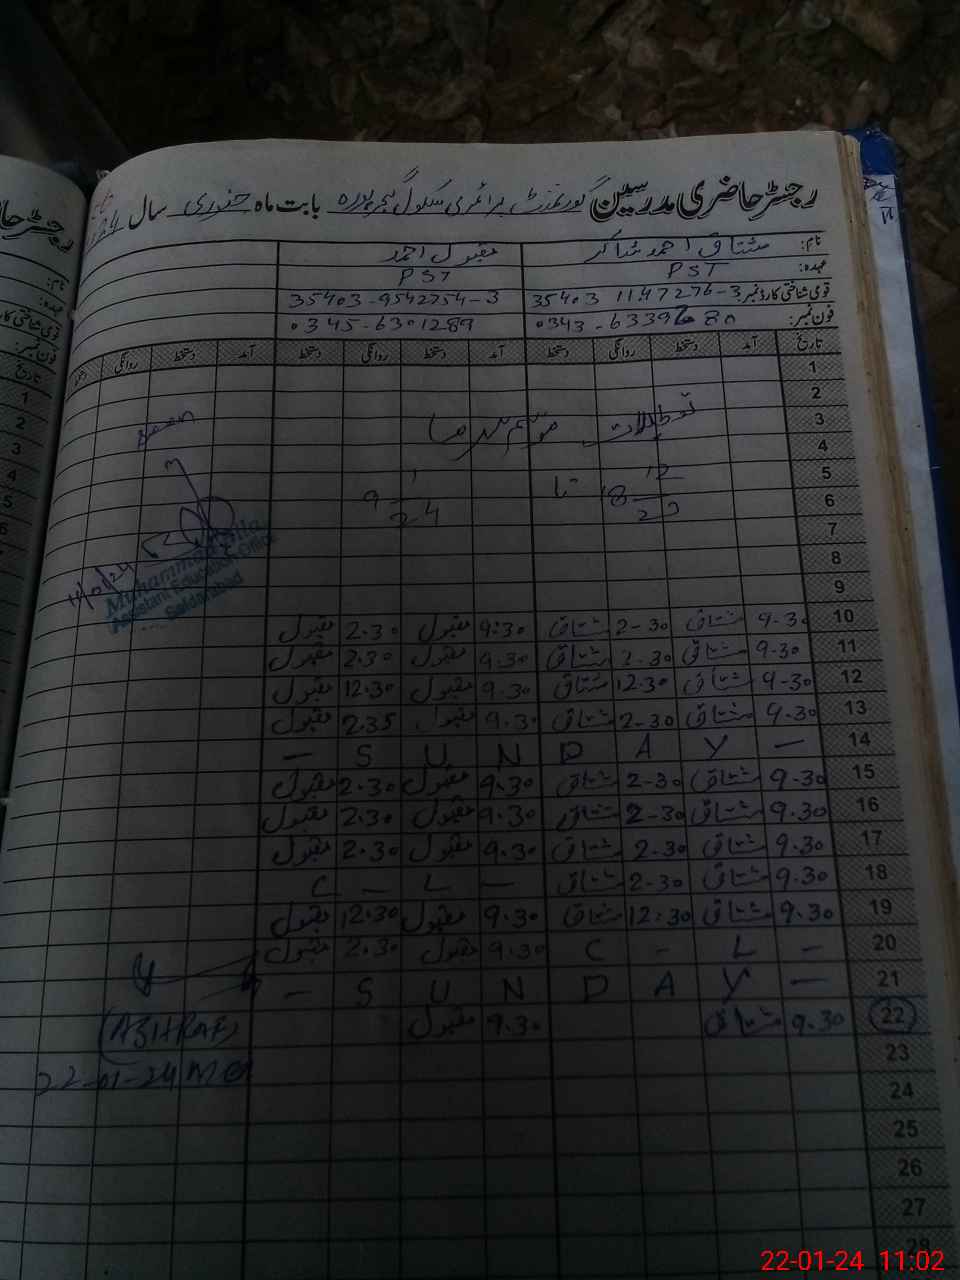 رجسٹر حاضری مدرسین گورنمنٹ پرائمری سکول گجر پورہ بابت ماہ جنوری سال
نام: مشتاق احمد شاکر مقبول احمد
عہدہ: PST PST
قومی شناختی کارڈ نمبر: 35403 1147276-3 35403-9542754-3
فون نمبر: 0343-6339680 0345-6301289
تاریخ آمد دستخط روانگی دستخط آمد دستخط روانگی دستخط آمد دستخط روانگی
1
2
3 تعطیلات موسم سرما seen
4
5 18 12 تا 9 1
6 23 24
7
8 11/01/24 Muhammad
9 Assistant Education Office
10 9-30 مشتاق 2-30 مشتاق 9:30 مقبول 2.30 مقبول
11 9-30 مشتاق 2-30 مشتاق 9.30 مقبول 2.30 مقبول
12 9-30 مشتاق 12.30 مشتاق 9.30 مقبول 12.30 مقبول
13 9.30 مشتاق 2-30 مشتاق 9.30 مقبول 2.35 مقبول
14 — S U N D A Y —
15 9-30 مشتاق 2-30 مشتاق 9.30 مقبول 2.30 مقبول
16 9.30 مشتاق 2-30 مشتاق 9.30 مقبول 2.30 مقبول
17 9.30 مشتاق 2-30 مشتاق 9.30 مقبول 2.30 مقبول
18 9.30 مشتاق 2-30 مشتاق C — L —
19 9.30 مشتاق 12:30 مشتاق 9.30 مقبول 12.30 مقبول
20 C - L - 9.30 مقبول 2.30 مقبول
21 — S U N D A Y —
22 9.30 مشتاق 9.30 مقبول (ASHRAF)
23 22-01-24
24
25
26
27
28
22-01-24 11:02